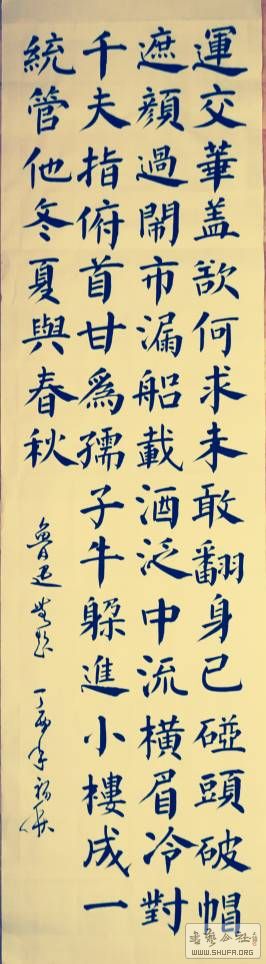 運交華盖欲何求未敢翻身已碰頭破帽
遮顏過鬧市漏船載酒泛中流橫眉冷對
千夫指俯首甘爲孺子牛躲進小樓成一
統管他冬夏與春秋
魯迅
WWW.SHUFA.ORG